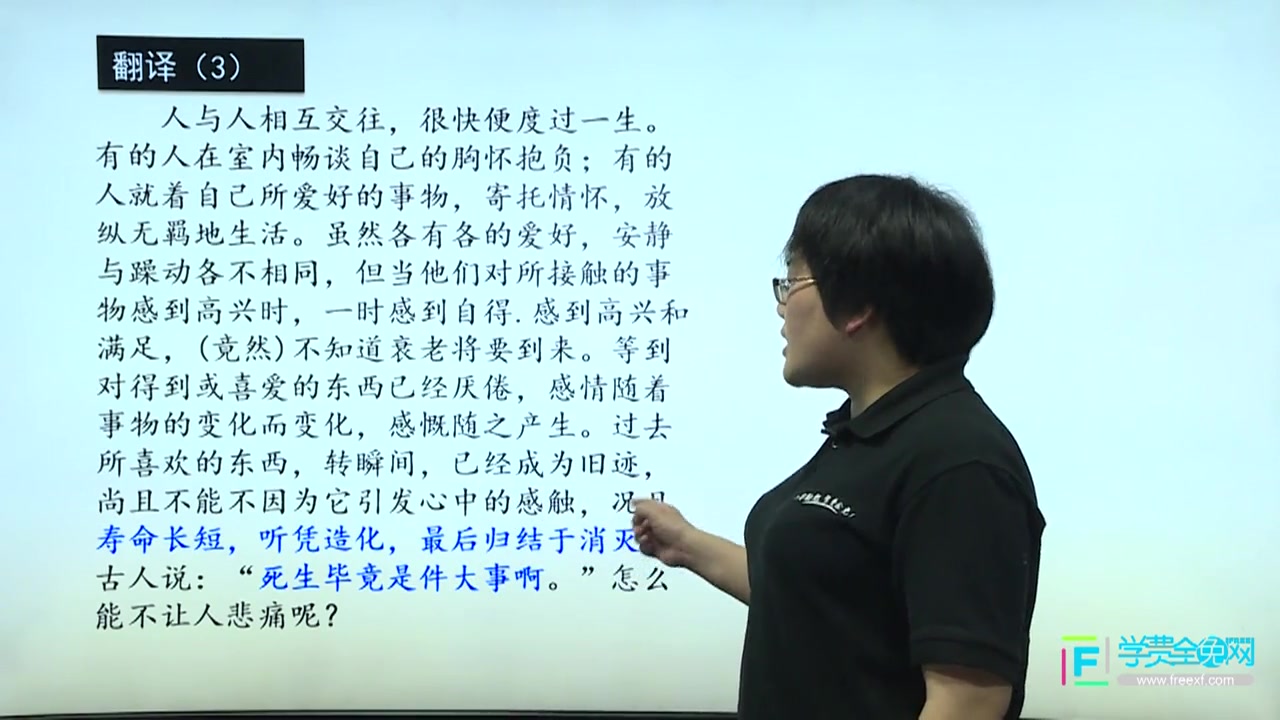 翻译（3）
人与人相互交往，很快便度过一生。
有的人在室内畅谈自己的胸怀抱负；有的
人就着自己所爱好的事物，寄托情怀，放
纵无羁地生活。虽然各有各的爱好，安静
与躁动各不相同，但当他们对所接触的事
物感到高兴时，一时感到自得.感到高兴和
满足，(竟然)不知道衰老将要到来。等到
对得到或喜爱的东西已经厌倦，感情随着
事物的变化而变化，感慨随之产生。过去
所喜欢的东西，转瞬间，已经成为旧迹，
尚且不能不因为它引发心中的感触，况
寿命长短，听凭造化，最后归结于消灭
古人说：“死生毕竟是件大事啊。”怎么
能不让人悲痛呢？
F 学费全免网
www.freexf.com